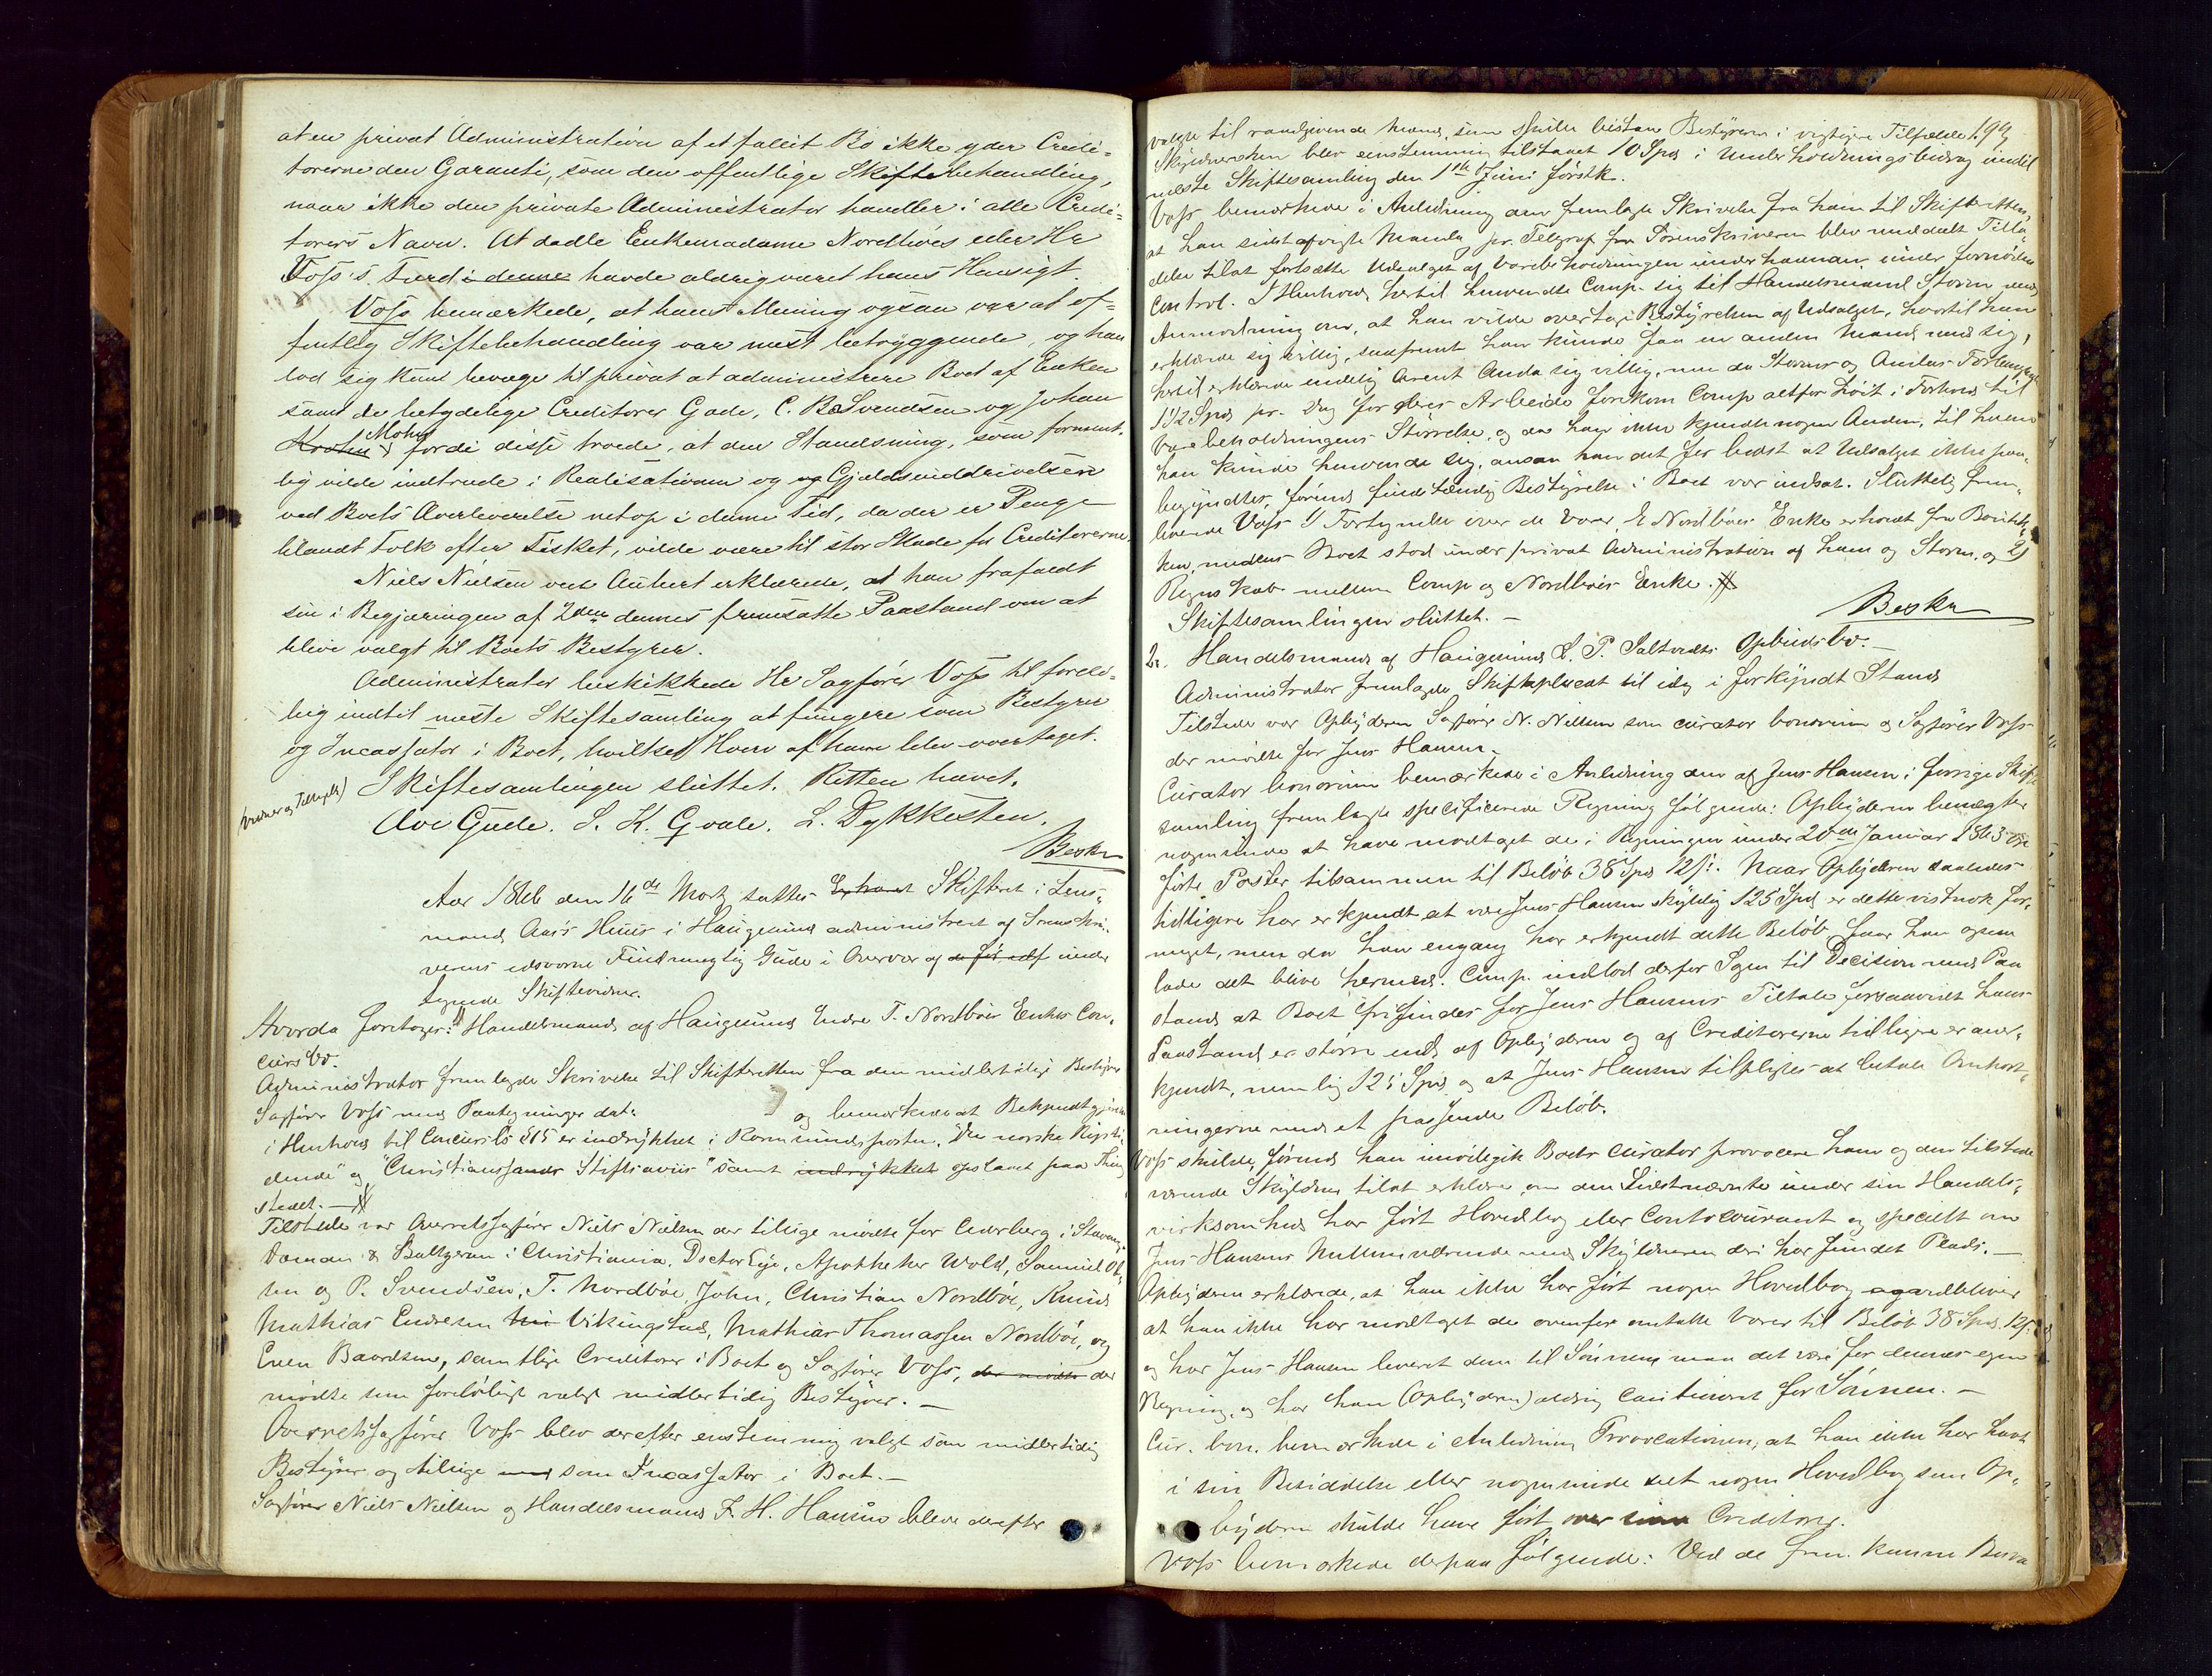 at en privat Administration af et fallit Bo ikke yder Credi=
torerne den Garanti, som den offentlige Skiftebehandling,
naar ikke den private Administrator handler i alle Credi=
torers Navn. At dadle Enkemadame Nordböes eller Hr
Voss's Færd i denne havde aldrig været hans Hensigt.
Voss bemærkede, at hans Mening ogsaa var at of=
fentlig Skiftebehandling var mest betryggende, og han
lod sig kun bevæge til privat at administrere Boet af Enken
samt de betydelige Creditorer Gade, C. B. Svendsen og Johan
Mohn fordi disse troede, at den Standsning, som forment=
lig vilde indtræde i Realisationen og og Gjældsinddrivelsen
ved Boets Overleverelse netop i denne Tid, da der er Penge
blandt Folk efter Fisket, vilde være til stor Skade for Creditorerne.
Niels Nielsen ved Aubert erklærede, at han frafaldt
sin i Begjæringen af 2den dennes fremsatte Paastand om at
blive valgt til Boets Bestyrer.
Administrator beskikkede Hr Sagförer Voss til forelö=
big indtil næste Skiftesamling at fungere som Bestyrer
og Incassator i Boet, hvilket Hverv af ham blev overtaget.
Skiftesamlingen sluttet. Retten hævet.
Ove Gude. S. K. Qvale. L. Dykkesten.
Beskr
Aar 1866 den 16de Marts sattes Extraret Skifteret i Lens=
mand Aars Huus i Haugesund administreret af Sorenskri=
verens edsvorne Fuldmægtig Gude i Overvær af under
tegnede Skiftevidner.
Hvorda foretoges: 1) Handelsmand af Haugesund Endre T. Nordböes Enkes Con=
cursbo.
Administrator fremlagde Skrivelse til Skifteretten fra den midlertidige Bestyrer
Sagförer Voss med Paategninger dat:
og bemærkede at Bekjendtgjörelse
i Henhold til Concursls § 15 er indrykket i Karmsundsposten, "Den norske Rigsti=
dende" og "Christianssands Stiftsavis" samt indrykket opslaaet paa Thing
stedet. —
Tilstede var Overretssagförer Niels Nielsen der tillige mödte for Cederberg i Stavanger
Doman & Baltzersen i Christiania, Doctor Eye, Apotheker Wold, Samuel Ol=
sen og P. Svendsen, T. Nordböe, John, Christian Nordböe, Knud
Mathias Endresen Vikingstad, Mathias Thomassen Nordböe, og
Even Baardsen, samtlige Creditorer i Boet og Sagförer Voss, der mödte der
mödte som forelöbigt valgt midlertidig Bestyrer. —
Overretssagförer Voss blev derefter eenstemmig valgt som midlertidig
Bestyrer og tillige som Incassator i Boet. —
Sagförer Niels Nielsen og Handelsmand F. H. Hansen bleve derefter
valgte til raadgivende Mænd, som skulle bistaa Bestyreren i vigtigere Tilfælde. 199
Skyldnersken blev eenstemmig tilstaaet 10 Spd i Underholdningsbidrag indtil
næste Skiftesamling den 1ste Juni förstk.
Voss bemærkede i Anledning den fremlagte Skrivelse fra ham til Skifteretten,
at han sidstafvigte Mandag pr. Telegraf fra Sorenskriveren blev meddelt Tilla=
delse til at fortsætte Udsalget af Varebeholdningen under fornöden
Control. I Henhold hertil henvendte Comp. sig til Handelsmand Storm med
Anmodning om, at han vilde overtage Bestyrelsen af Udsalget, hvortil han
erklærede sig villig, saafremt han kunde faa en anden Mand med sig,
hertil erklærede endelig Arent Anda sig villig, men da Storms og Andas Forlangende
1 1/2 Spd pr. Dag for deres Arbeide forekom Comp altfor höit i Forhold til
Varebeholdningens Störrelse, og da han ikke kjendte nogen Anden, til hvem
han kunde henvende sig, ansaa han det for bedst at Udsalget ikke paa=
begyndtes, förend fuldstændig Bestyrelse i Boet var indsat. Sluttelig frem=
leverede Voss 1) Fortegnelse over de Varer E Nordböes Enke erholdt fra Boutik=
ken, medens Boet stod under privat Administration af ham og Storm, og 2)
Regnskab mellem Comp og Nordböes Enke.
Skiftesamlingen sluttet. —
Beskr
2. Handelsmand af Haugesund L. P. Saltvedts Opbudsbo. —
Administrator fremlagde Skifteplacat til idag i forkyndt Stand
Tilstede var Opbyderen Sagförer N. Nielsen som curator bonorum og Sagförer Voss
der mödte for Jens Hansen.
Curator bonorum bemærkede i Anledning den af Jens Hansen i forrige Skifte
samling fremlagte specificerede Regning fölgende: Opbyderen benægter
nogensinde at have modtaget de i Regningen under 20de Januar 1863 op
förte Poster tilsammen til Belöb 38 Spd 12 s. Naar Opbyderen saaledes
tidligere har erkjendt at være Jens Hansen skyldig 125 Spd er dette vistnok for
meget, men da han engang har erkjendt dette Belöb faar han ogsaa
lade det blive hermed. Comp. indlod derfor Sagen til Decision med Paa
stand at Boet frifindes for Jens Hansens Tiltale forsaavidt hans
Paastand er större end af Opbyderen og af Creditorerne tidligere er aner=
kjendt, nemlig 125 Spd og at Jens Hansen tilpligtes at betale Omkost=
ningerne med et passende Belöb.
Voss skulde, förend han imödegik Boets Curator provocere ham og den tilstede
værende Skyldner til at erklære, om den Sidstnævnte under sin Handels=
virksomhed har fört Hovedbog eller Contocourant og specielt om
Jens Hansens Mellemværende med Skyldneren deri har fundet Plads. —
Opbyderen erklærede, at han ikke har fört nogen Hovedbog
at han ikke har modtaget de ovenfor omtalte Varer til Belöb 38 Spd. 12 s.
og har Jens Hansen leveret dem til Sönnen maa det være for dennes egen
Regning, og har han (Opbyderen) aldrig cautioneret for Sönnen. —
Cur. bon. bemærkede i Anledning Provocationen, at han ikke har havt
i sin Besiddelse eller nogensinde seet nogen Hovedbog som Op=
byderen skulde have fört over sine Creditorer.
Voss bemærkede derpaa fölgende: Ved de frem.